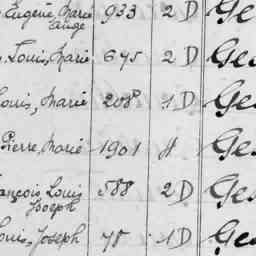 Eugène, Marie 933 2 D Ge
Ange
Louis, Marie 645 2 D Ge
Louis, Marie 208 1 D Ge
Pierre, Marie 1901 Ge
ançois Louis 588 2 D Ge
Joseph
ouis, Joseph 78 1 D Ge